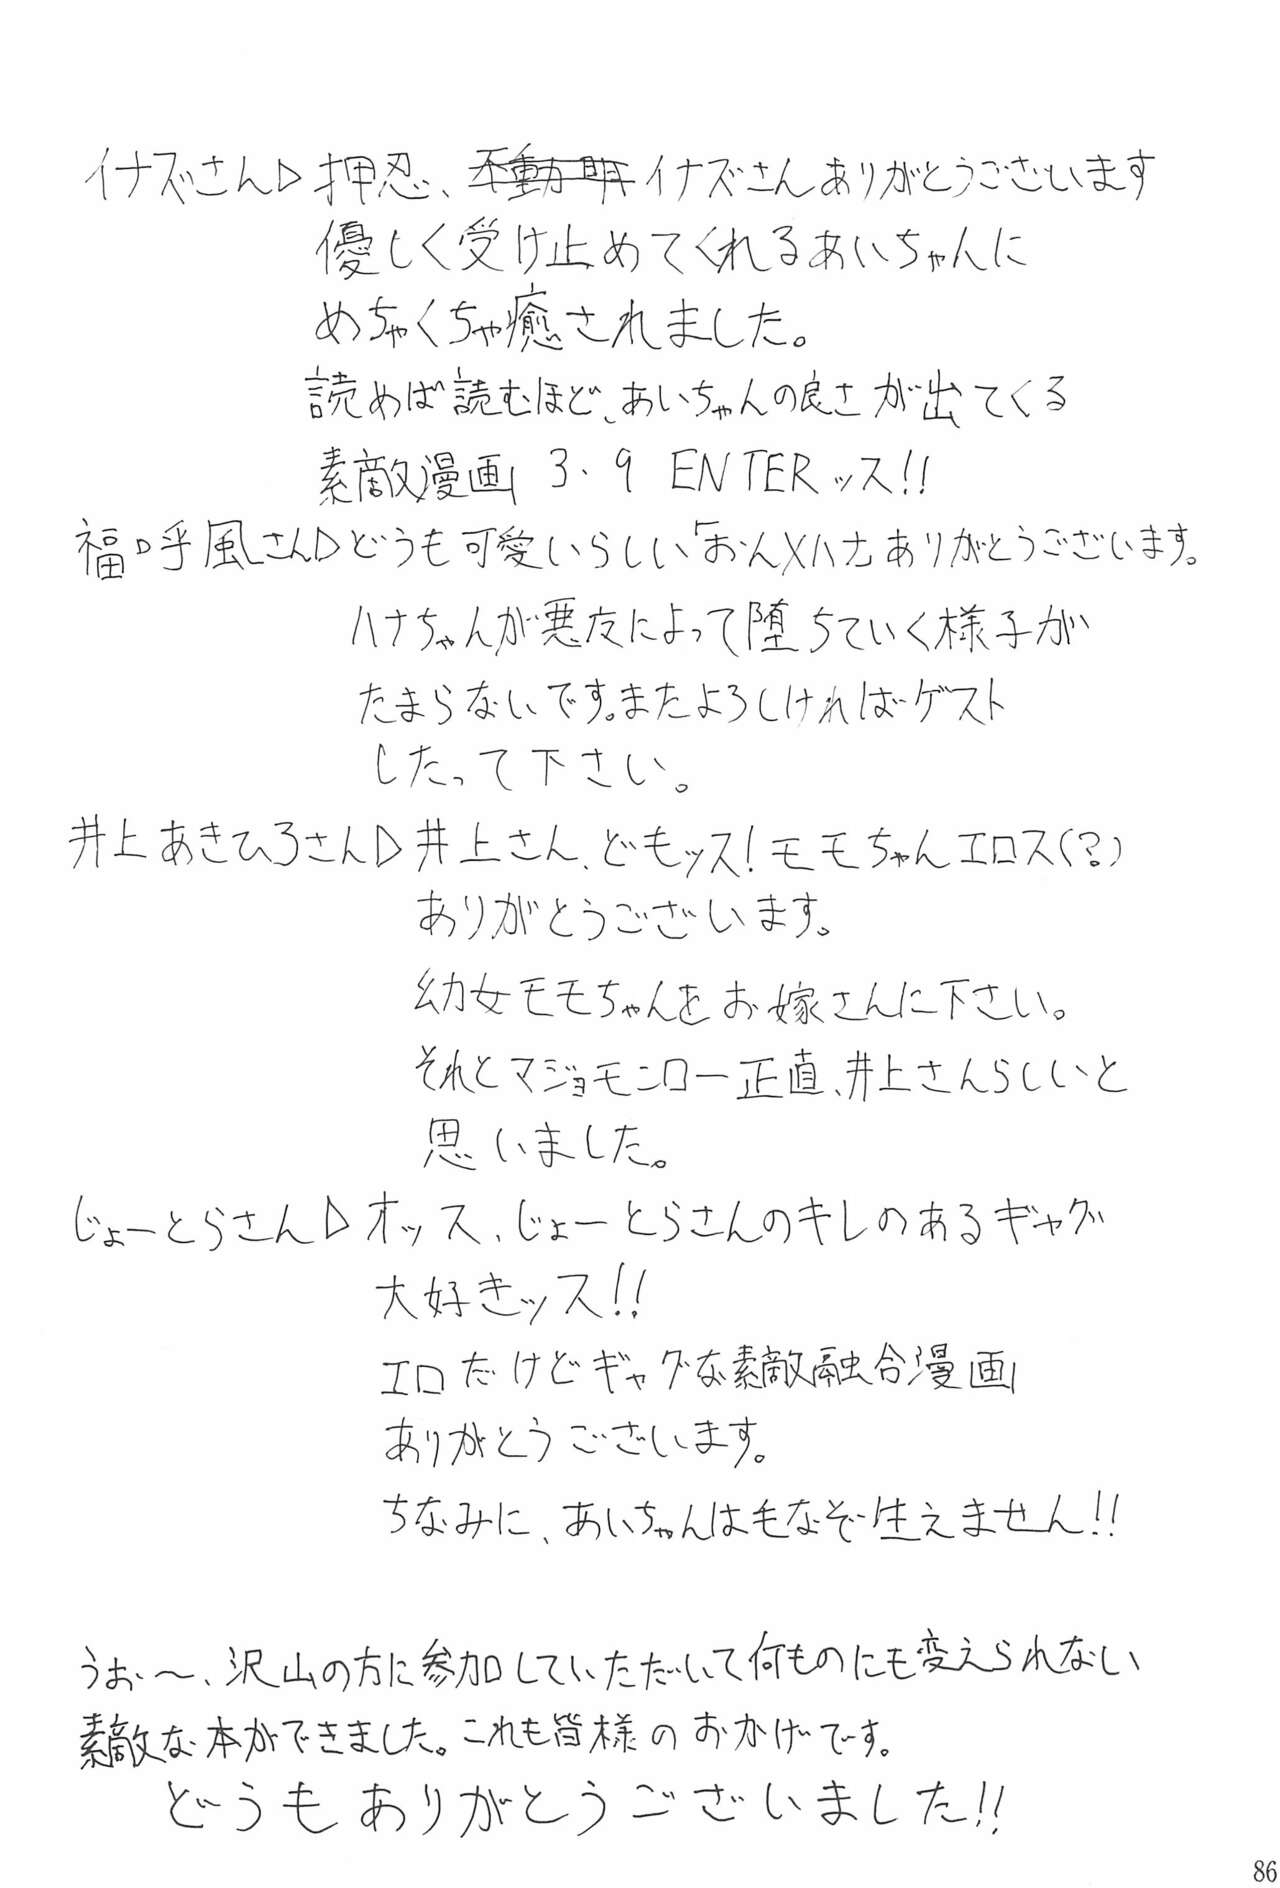 イナズさん▷押忍、不動明イナズさんありがとうございます
優しく受け止めてくれるあいちゃんに
めちゃくちゃ癒されました。
読めば読むほど、あいちゃんの良さが出てくる
素敵漫画 3.9 ENTERッス!!
福ロ乎風さん▷どうも可愛いらしい「おん×ハナ」ありがとうございます。
ハナちゃんが悪友によって堕ちていく様子が
たまらないです。またよろしければゲスト
したって下さい。
井上あきひろさん▷井上さん、どもッス!モモちゃんエロス(?)
ありがとうございます。
幼女モモちゃんをお嫁さんに下さい。
それとマジョモンロー正直、井上さんらしいと
思いました。
じょーとらさん▷オッス、じょーとらさんのキレのあるギャグ
大好きッス!!
エロだけどギャグな素敵融合漫画
ありがとうございます。
ちなみに、あいちゃんは毛なぞ生えません!!
うぉ〜、沢山の方に参加していただいて何ものにも変えられない
素敵な本ができました。これも皆様のおかげです。
どうもありがとうございました!!
86